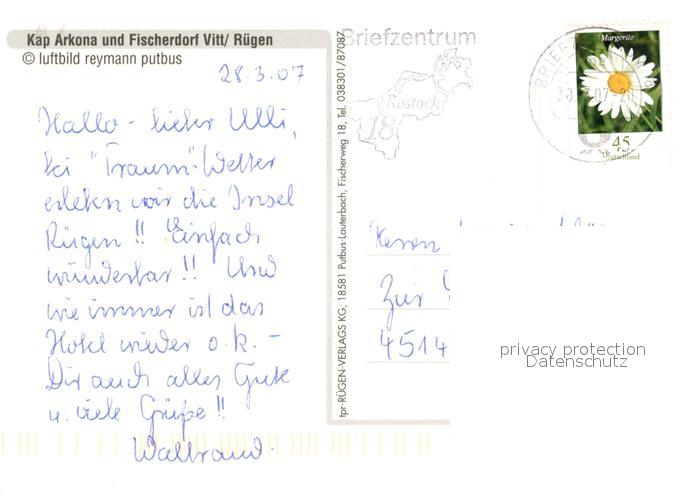 Kap Arkona und Fischerdorf Vitt/ Rügen
© luftbild reymann putbus
28.3.07
Hallo - lieber Ulli,
bei "Traum"-Wetter
erleben wir die Insel
Rügen!! Einfach
wunderbar!! Und
wie immer ist das
Hotel wieder o.k. -
Dir auch alles Gute
u. viele Grüße!!
Waltraud
tpr-RÜGEN-VERLAGS KG, 18581 Putbus-Lauterbach, Fischerweg 18, Tel. 038301/87087
Briefzentrum
Rostock
18
Margerite
45
Deutschland
Herrn
Zur
4514
privacy protection
Datenschutz